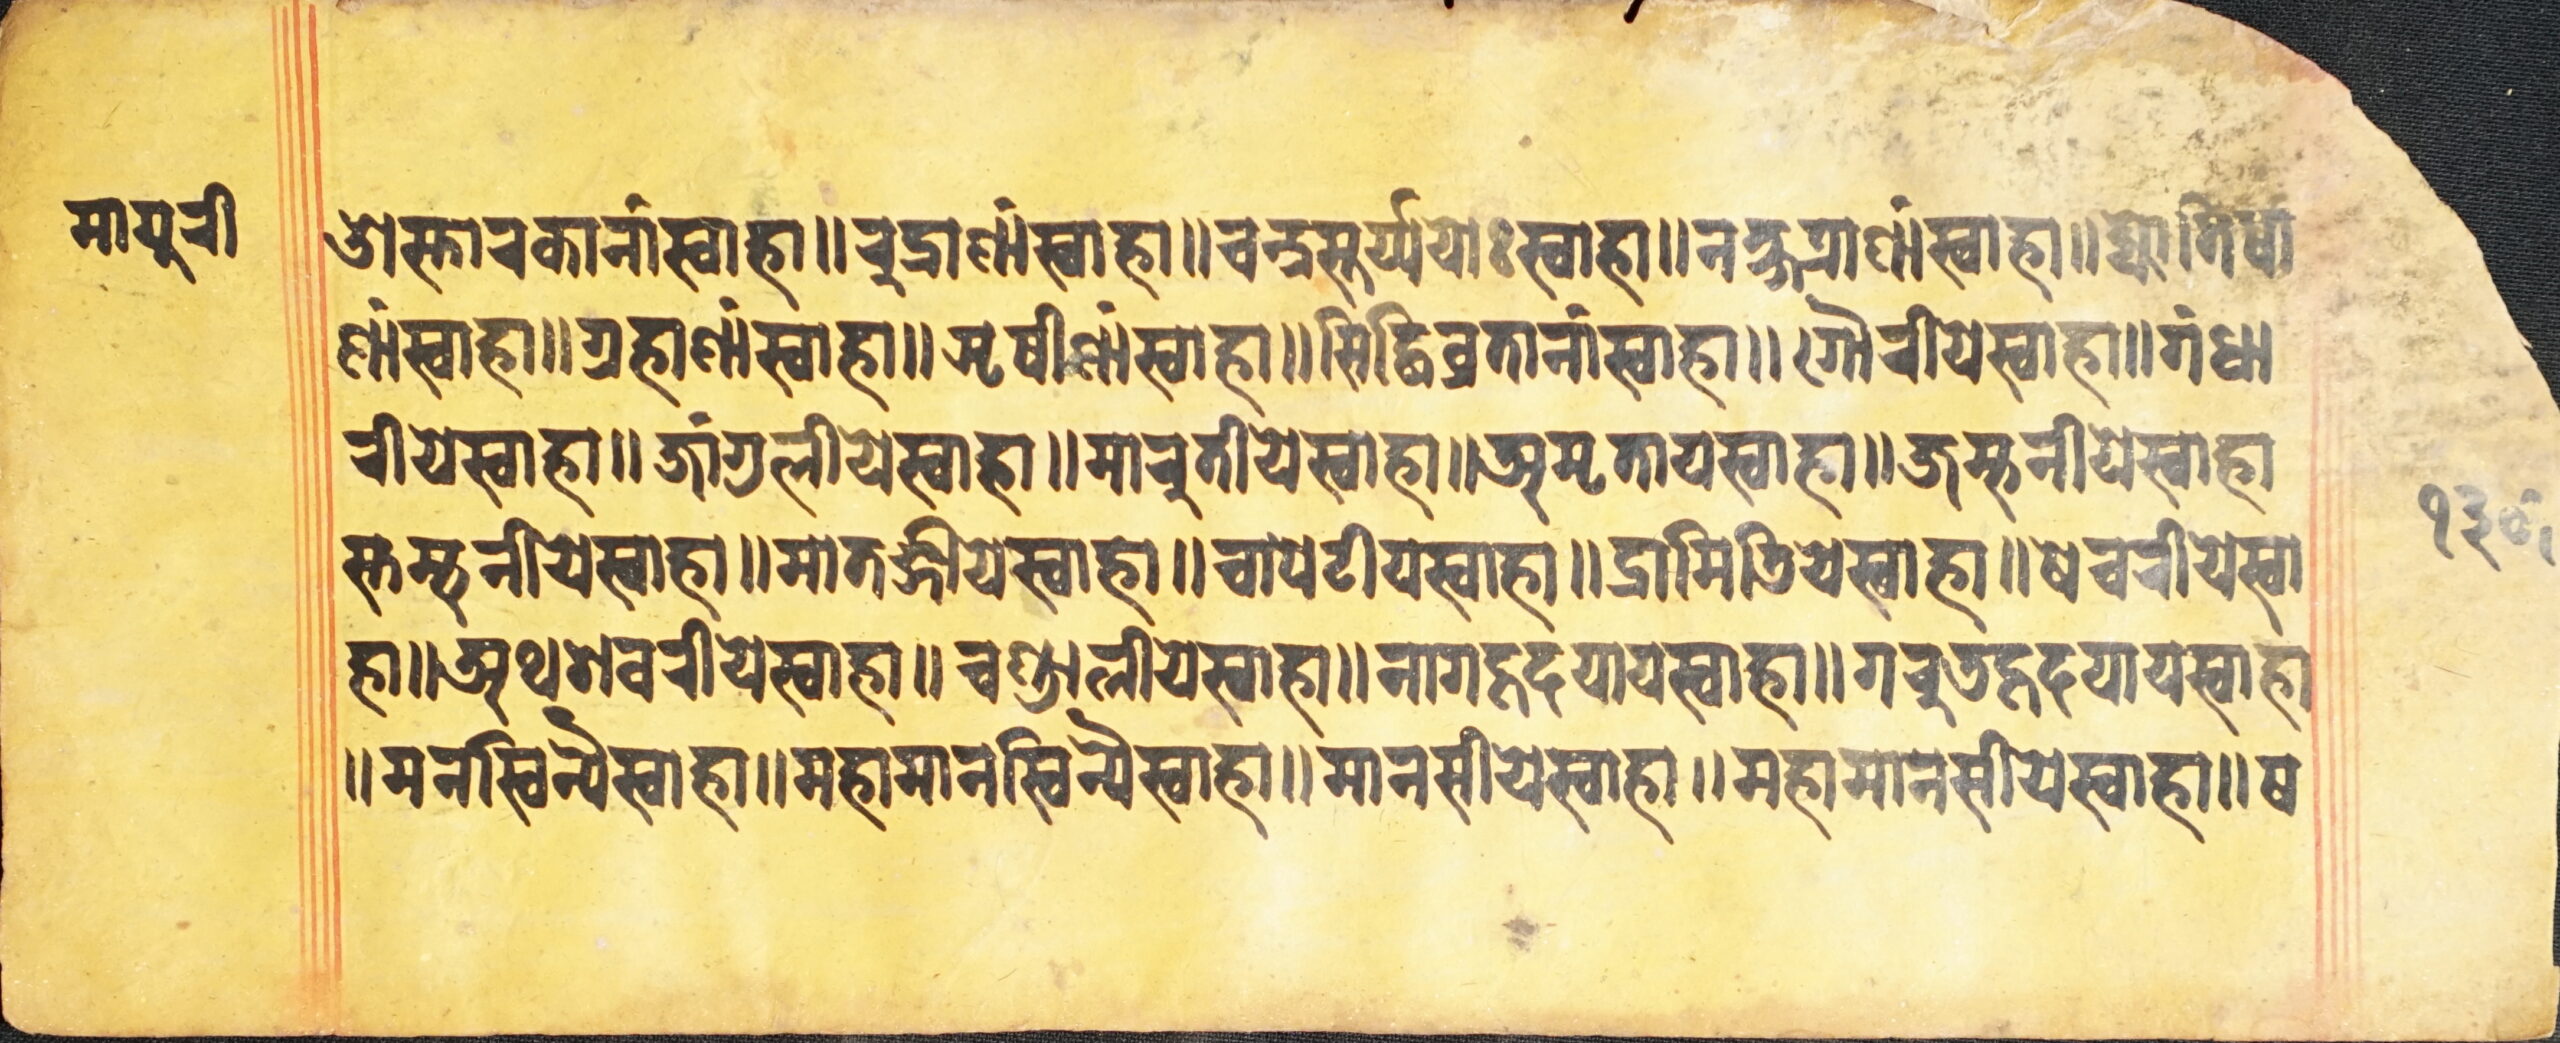 मायुरी
ओस्तारकानांस्वाहा॥रुद्राणांस्वाहा॥चन्द्रसूर्य्ययोःस्वाहा॥नक्षत्राणांस्वाहा॥ज्योतिषा
णांस्वाहा॥ग्रहाणांस्वाहा॥ऋषीणांस्वाहा॥सिद्धिव्रतानांस्वाहा॥गौरीयेस्वाहा॥गंधा
रीयेस्वाहा॥जांगुलीयेस्वाहा॥मारुतीयेस्वाहा॥अमृतायस्वाहा॥जम्भनीयेस्वाहा
स्तम्भनीयेस्वाहा॥मातङ्गीयेस्वाहा॥चापेटीयस्वाहा॥द्रामितियेस्वाहा॥षेचरीयेस्वा
हा॥अथशवरीयेस्वाहा॥चण्डालीयेस्वाहा॥नागहृदयायस्वाहा॥गरुतहृदयायस्वाहा
॥मनस्विन्यैस्वाहा॥महामानस्विन्यैस्वाहा॥मानसीयेस्वाहा॥महामानसीयेस्वाहा॥ष